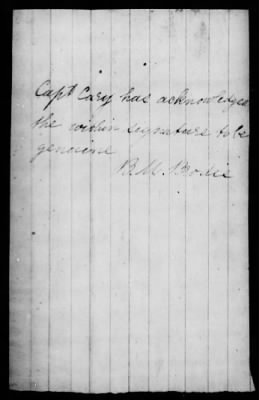 Capt Cary has acknowledged
the within signature to be
genuine
B. M. Brodie